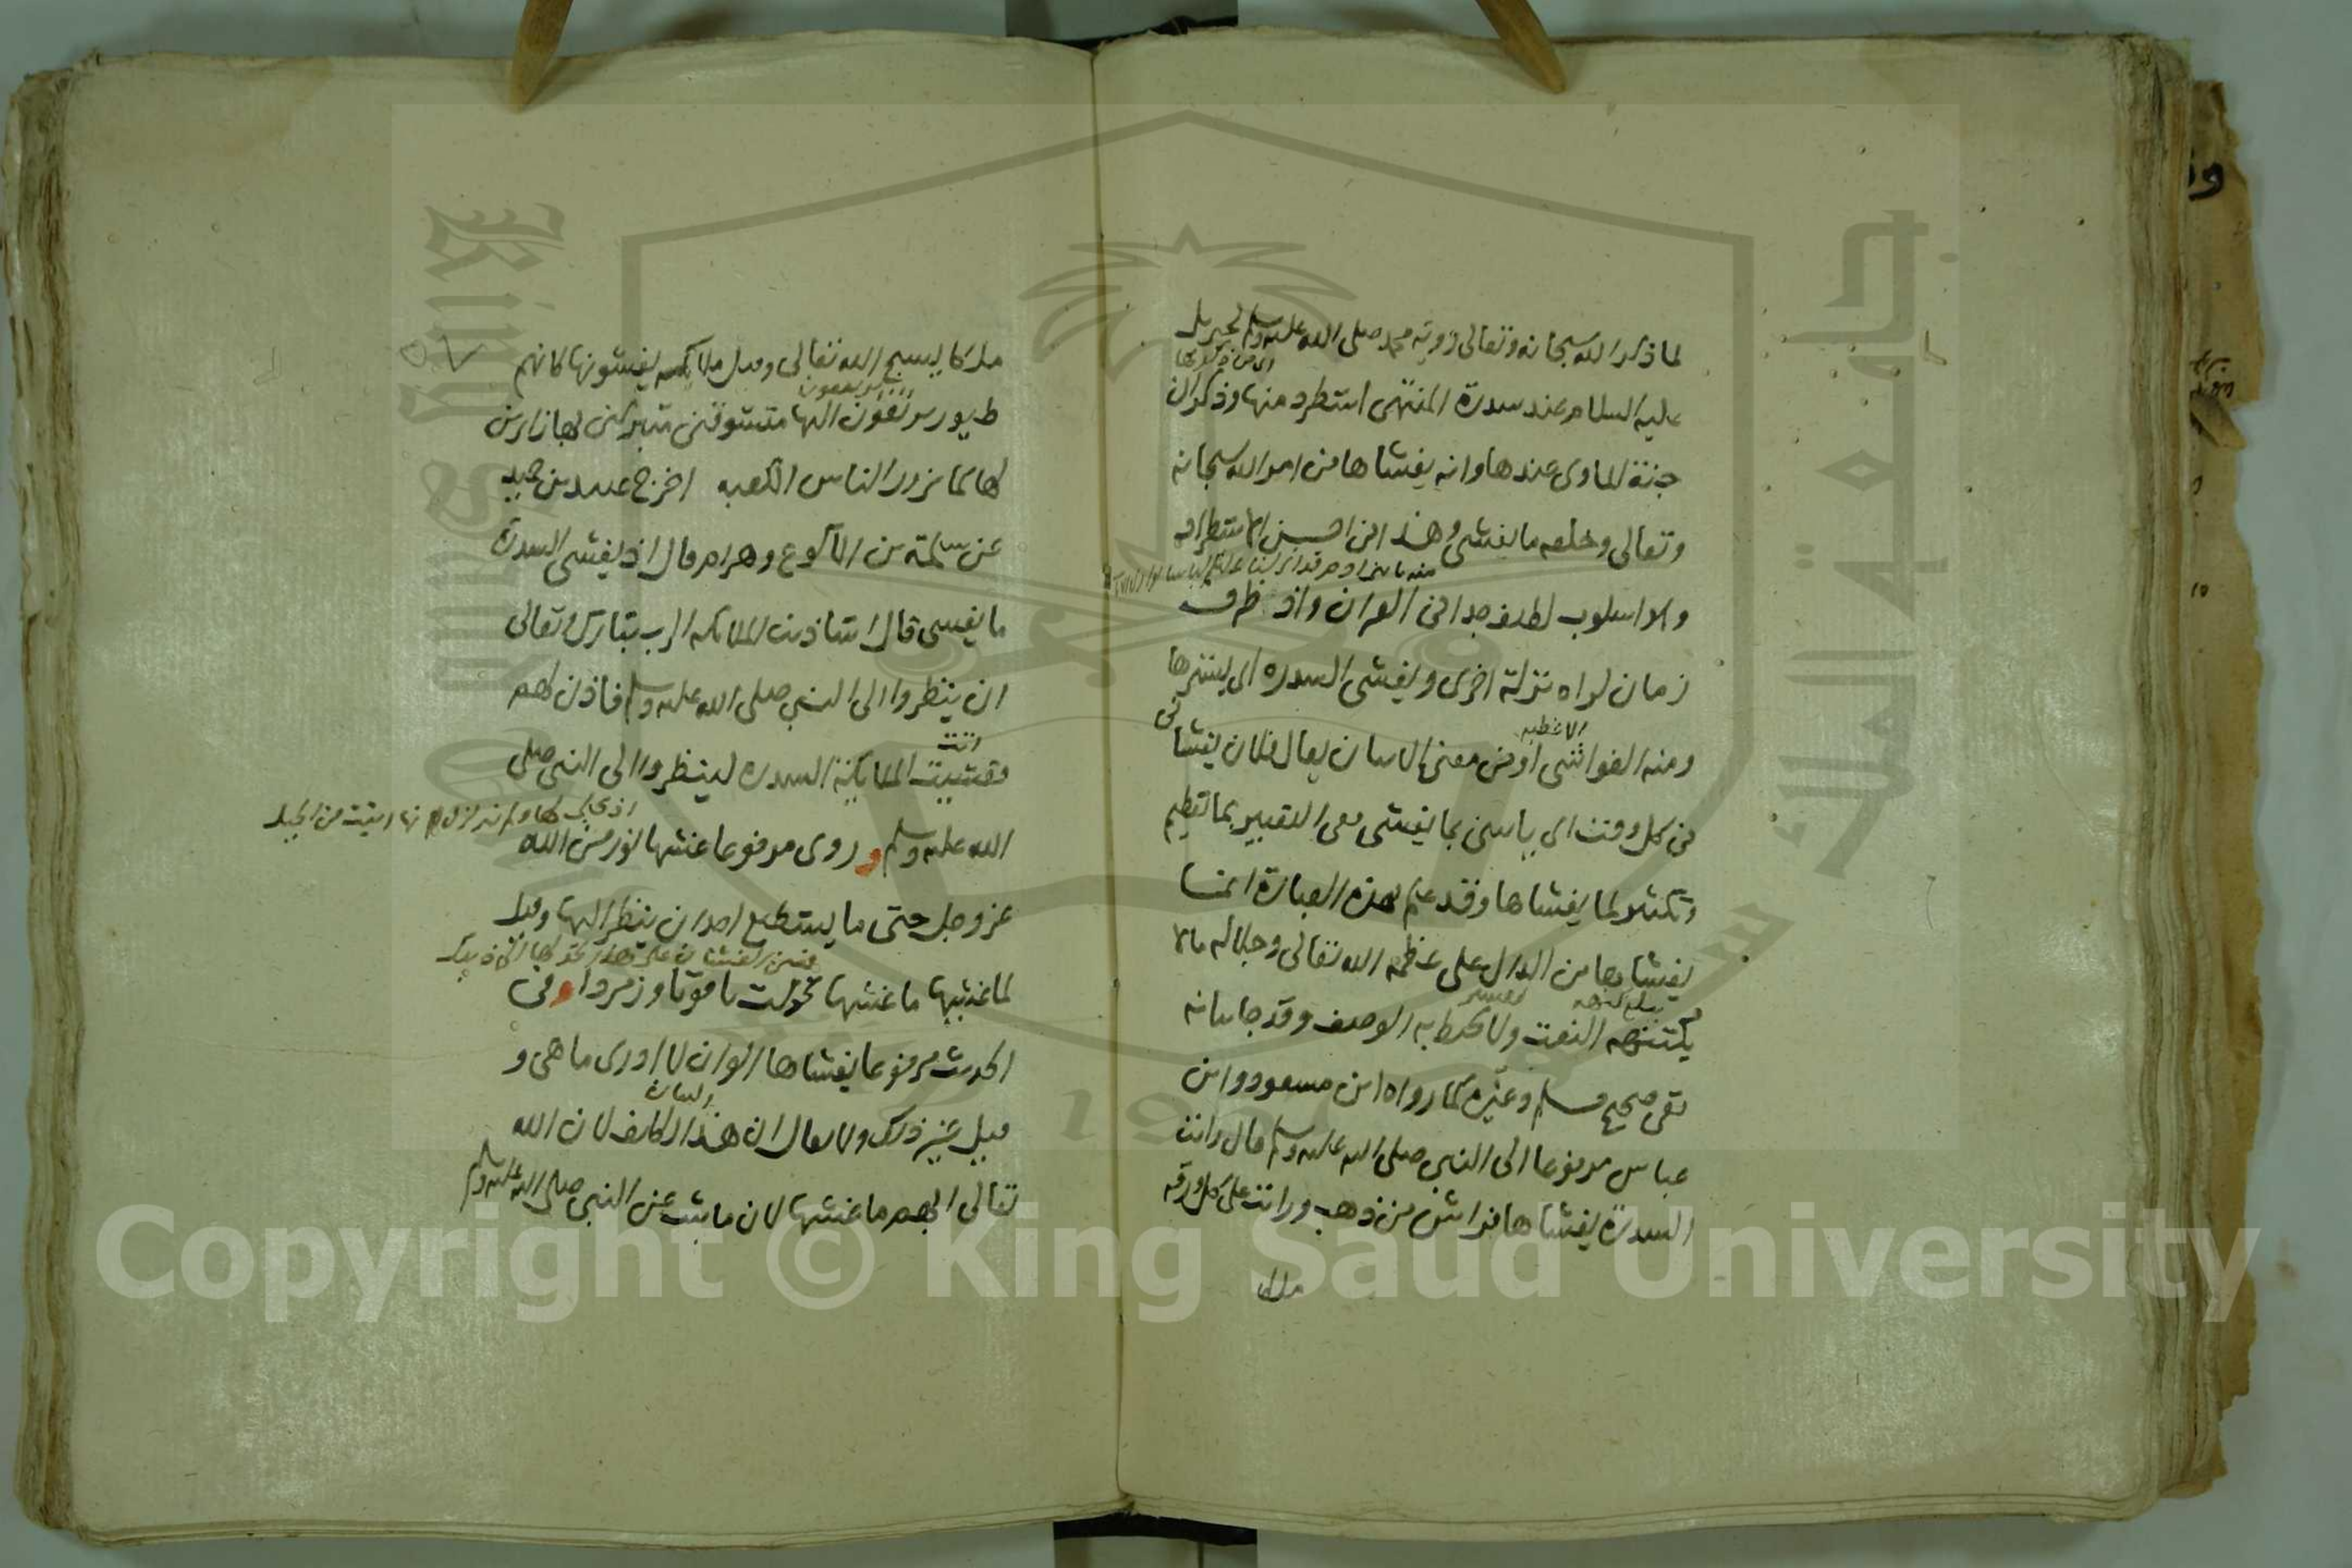 لما ذكر الله سبحانه وتعالى رويه محمد صلى الله عليه وسلم لجبريل
عليه السلام عند سدرة المنتهى استطرد منها وذكر ان
جنة الماوى عندها وانه يغشاها من امر الله سبحانه
وتعالى وخلقه ما يغشى وهذا من احسن الاستطراد
والاسلوب لطيف جدا في القران واذ ظرف
زمان لراه نزلة اخرى ويغشى السدره اى يسترها
ومنه الغواشى او من معنى الاتيان يقال فلان يغشانى
الاغطيه
فى كل وقت اى ياتينى بما يغشى معى التعبير بما تعظيم
وتكثير لما يغشاها وقد علم بهذه العبارة ان ما
يغشاها من الدال على عظمه الله تعالى وجلاله مالا
يكتنهه النعت ولا يحيط به الوصف وقد جا بيانه
ففى صحيح مسلم وغيره كما رواه ابن مسعود وابن
عباس مرفوعا الى النبى صلى الله عليه وسلم قال رايت
السدرة يغشاها فراش من ذهب ورايت على كل ورقه
ملكا
ملكا يسبح الله تعالى وقيل ملائكه يغشونها كانهم
طيور يرتقون اليها متشوقين متبركين بها زايرين
لها كما يزور الناس الكعبه اخرج عبد بن حميد
عن سلمة بن الاكوع وهرام قال اذ يغشى السدرة
ما يغشى قال استاذنت الملائكه الرب تبارك وتعالى
ان ينظروا الى النبى صلى الله عليه وسلم فاذن لهم
فغشيت الملائكة السدره لينظروا الى النبى صلى
الله عليه وسلم وروى مرفوعا غشيها نور من الله
عز وجل حتى ما يستطيع احد ان ينظر اليها وقيل
لما غشيها ما غشيها تحولت ياقوتا وزمردا وفى
الحديث مرفوعا يغشاها الوان لا ادرى ما هى و
قيل غير ذلك ولا يقال ان هذا لان الله
تعالى ابهم ما غشيها لان ما ثبت عن النبى صلى الله عليه وسلم
King Saud University
1957
Copyright © King Saud University